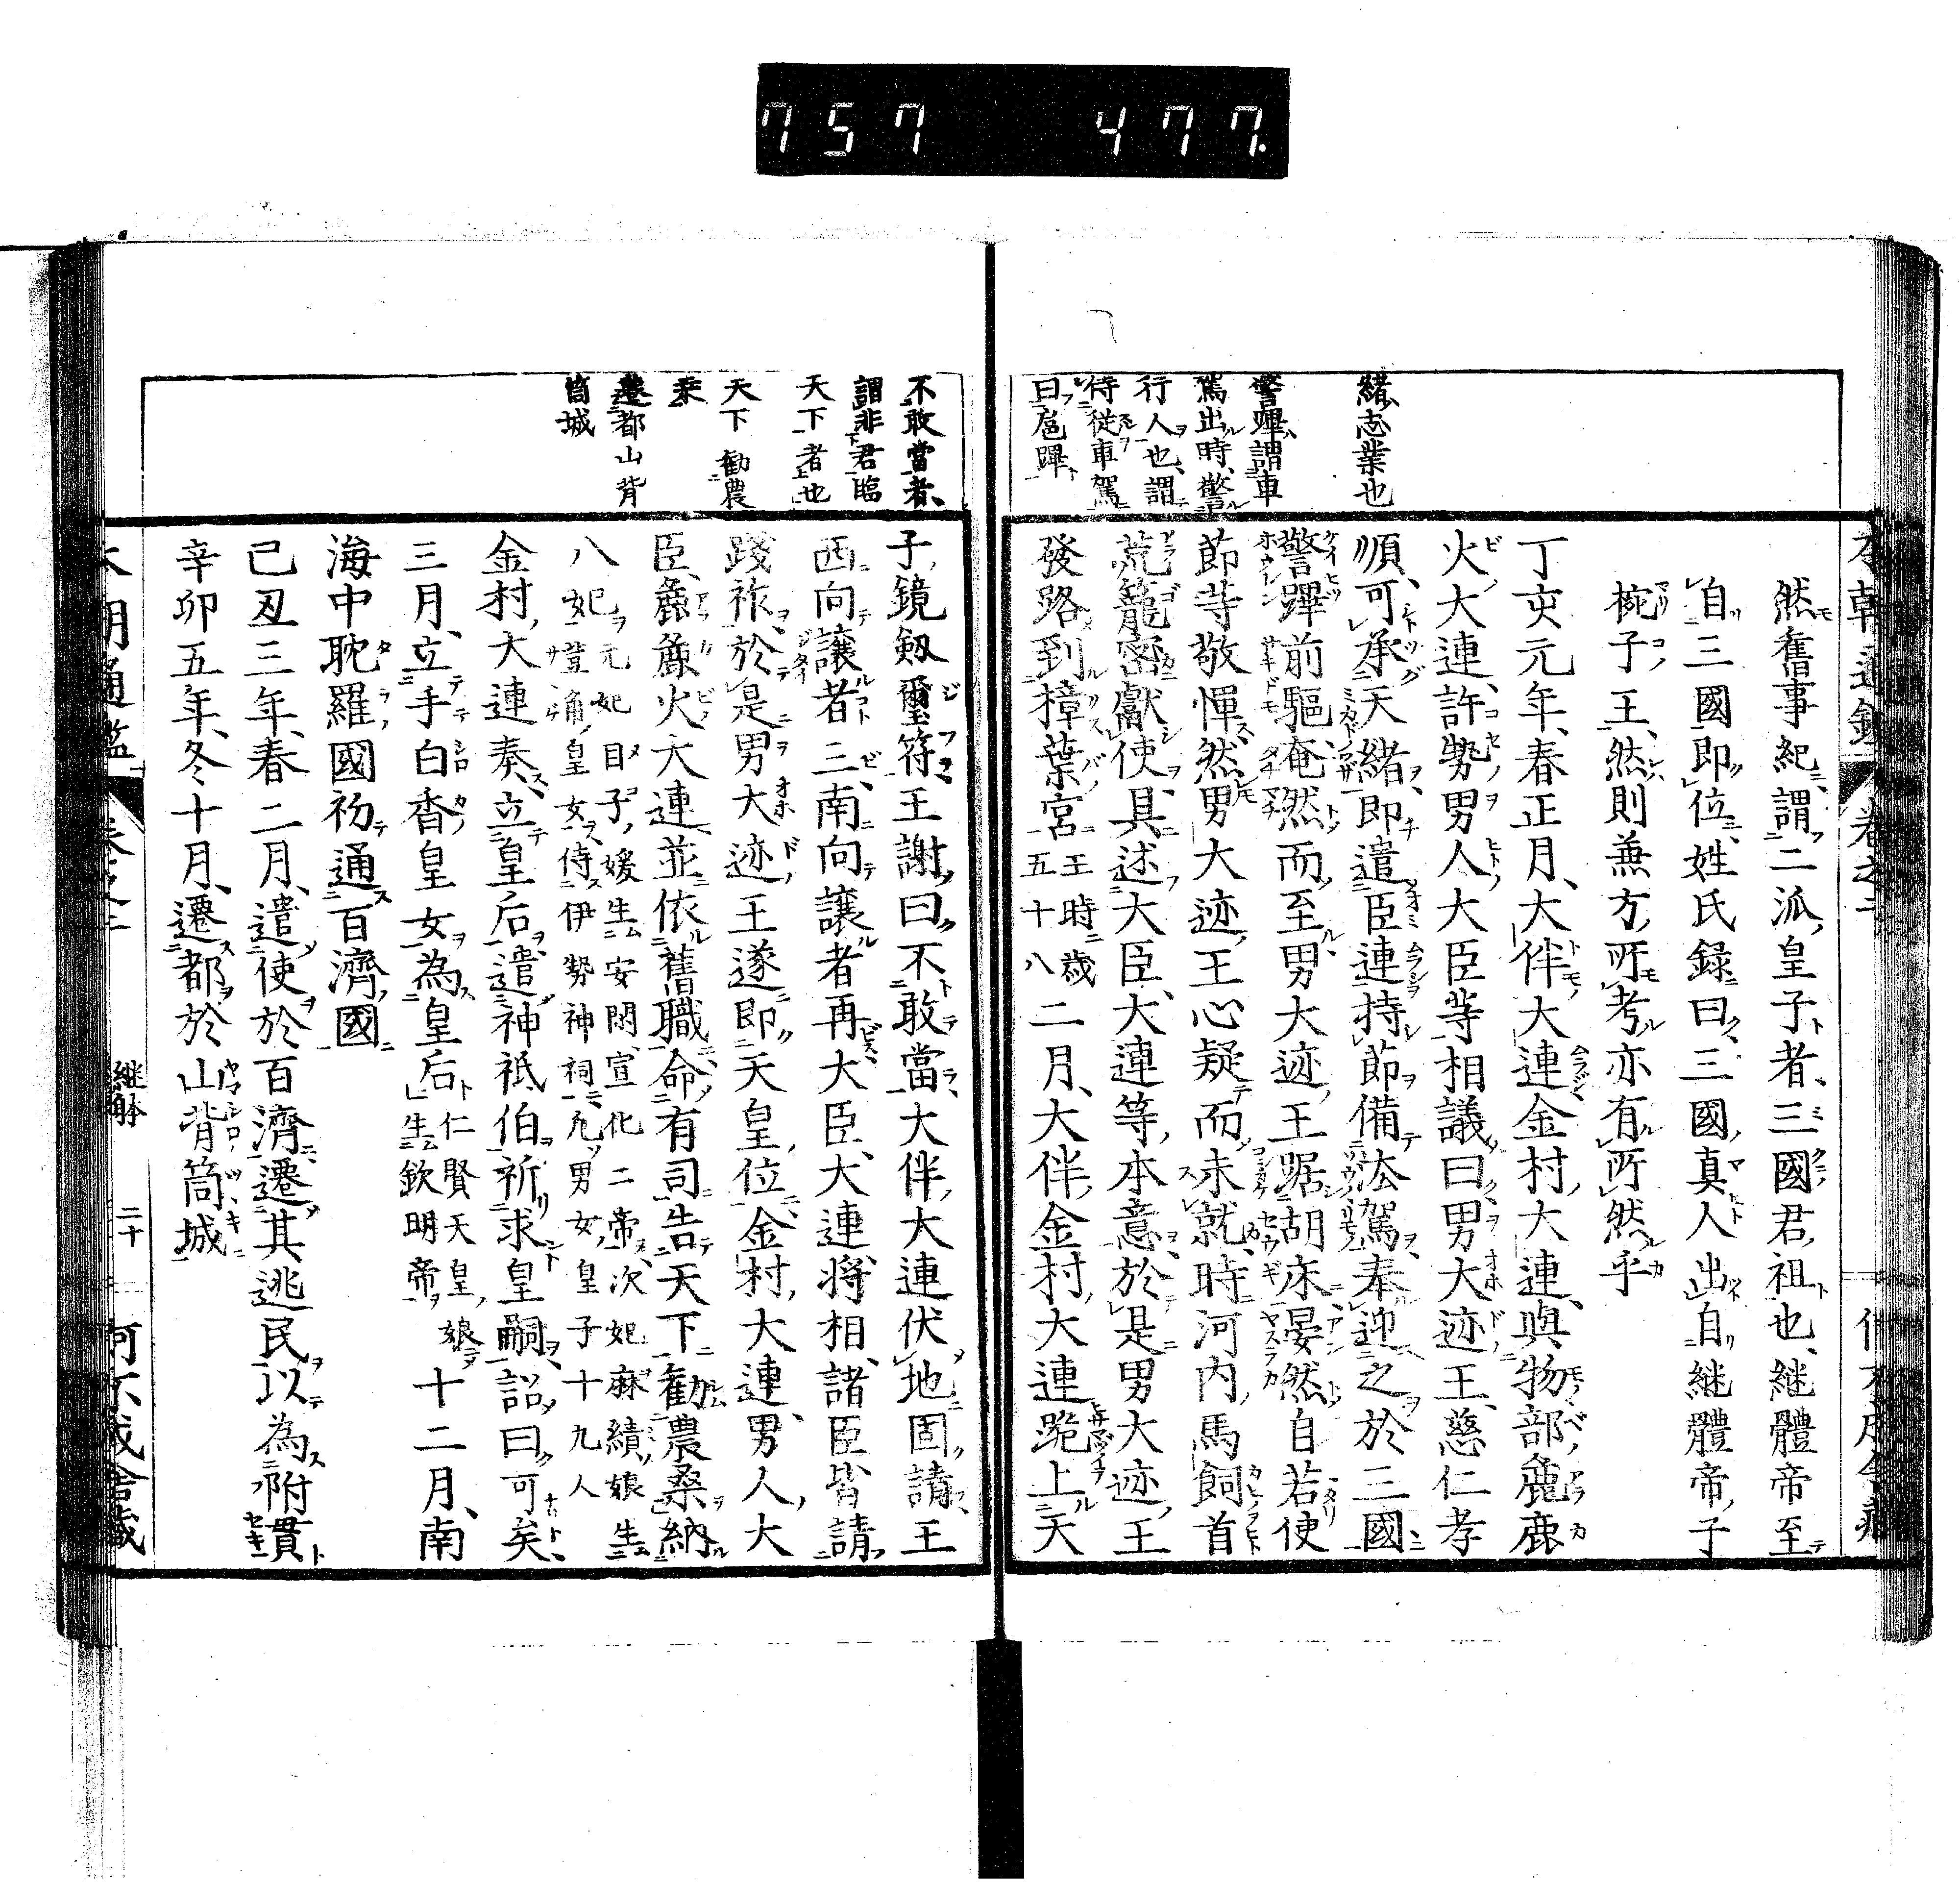 757 477.
緒、志業也
警蹕謂車
駕出時、警
行人也、謂
侍從車駕
曰扈蹕
然舊事紀、謂二派皇子者、三國君祖也、継體帝至
自三國即位、姓氏録曰、三國真人出自継體帝子
椀子王、然則兼方所考亦有所然乎
丁亥元年、春正月、大伴大連金村大連、與物部麁鹿
火大連、許勢男人大臣等相議曰、男大迹王、慈仁孝
順、可承天緒、即遣臣連持節備法駕、奉迎之於三國
警蹕前驅、奄然而至、男大迹王踞胡床、晏然自若、使
節等敬憚、然男大迹王心疑而未就、時河内馬飼首
荒籠密獻使、具述大臣、大連等本意、於是男大迹王
發路到樟葉宮王時歳五十八二月、大伴金村大連跪上天
不敢當者、
謂非君臨
天下者也
天下勸農
桒
遷都山背
筒城
子鏡剱璽符、王謝曰、不敢當、大伴大連伏地固請、王
西向讓者三、南向讓者再、大臣、大連、将相、諸臣皆請
踐祚、於是男大迹王遂即天皇位、金村大連、男人大
臣、麁鹿火大連並依舊職、命有司告天下勸農桑、納
八妃元妃目子媛生安閑、宣化二帝、次妃麻績娘子生荳角皇女侍伊勢神祠、凡男女皇子十九人
金村大連奏、立皇后、遣神祇伯祈求皇嗣、詔曰可矣
三月、立手白香皇女為皇后仁賢天皇娘生欽明帝十二月、南
海中耽羅國初通百濟國
己丑三年、春二月、遣使於百濟、遷其逃民以為附貫
辛卯五年、冬十月、遷都於山背筒城
継體 二十